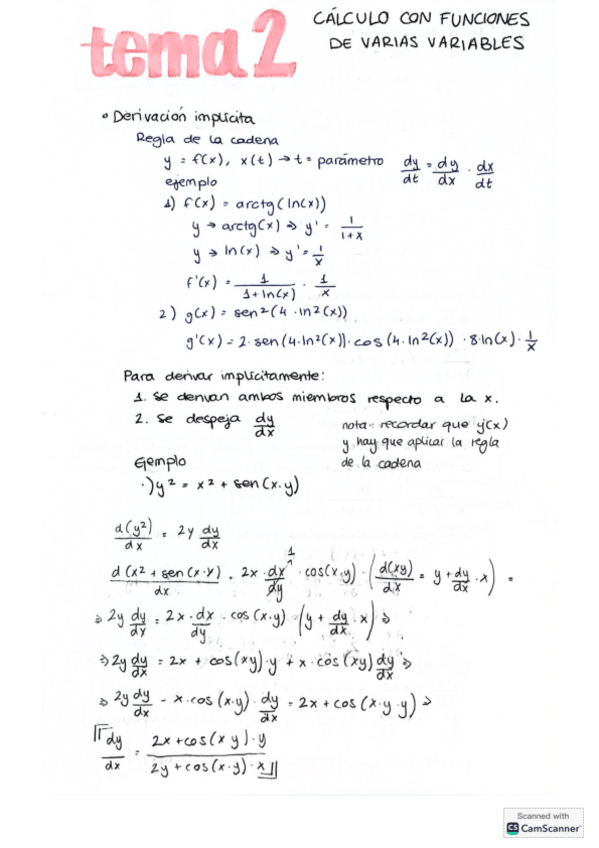 tema 2
CÁLCULO CON FUNCIONES
DE VARIAS VARIABLES
• Derivación implícita
Regla de la cadena
y = f(x), x(t) → t = parámetro dy/dt = dy/dx · dx/dt
ejemplo
1) f(x) = arctg(ln(x))
y → arctg(x) ⇒ y' = 1/(1+x)
y → ln(x) ⇒ y' = 1/x
f'(x) = 1/(1+ln(x)) · 1/x
2) g(x) = sen²(4·ln²(x))
g'(x) = 2·sen(4·ln²(x))·cos(4·ln²(x))·8·ln(x)·1/x
Para derivar implícitamente:
1. Se derivan ambos miembros respecto a la x.
2. Se despeja dy/dx
nota: recordar que y(x)
y hay que aplicar la regla
de la cadena
Ejemplo
·) y² = x² + sen(x·y)
d(y²)/dx = 2y dy/dx
d(x² + sen(x·y)/dx = 2x · dx/dy ^1 · cos(x·y) · (d(xy)/dx = y + dy/dx · x) =
⇒ 2y dy/dy = 2x · dx/dy · cos(x·y) · (y + dy/dx · x) ⇒
⇒ 2y dy/dx = 2x + cos(xy)·y + x·cos(xy) dy/dx ⇒
⇒ 2y dy/dx - x·cos(x·y) · dy/dx = 2x + cos(x·y·y) ⇒
dy/dx = (2x + cos(x y)·y)/(2y + cos(x·y)·x)
Scanned with
CS CamScanner